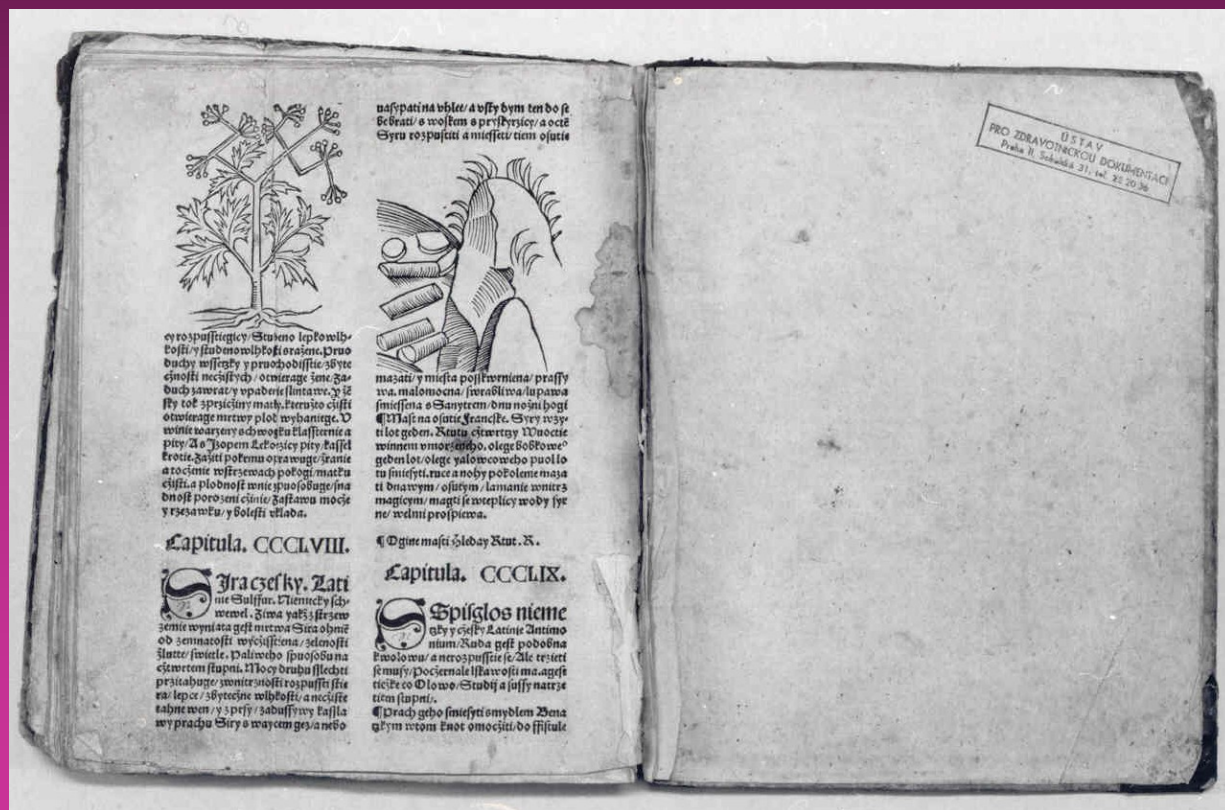 ey rozpusstiegicy/Studeno lepkowlh-
kosti/y studenowlhkosti sražene. Pruo
duchy wssetzky y pruochodisstie/zbyte
cžnosti necžistych/otwierage žene/Za-
duch zawrat/y vpadenie slintawe.
sky tok zpricžiny matky. kteružto cžisti
otwierage mrtwy plod wyhaniege. V
winie warzeny schwogku klassternie a
pity/A s Jzopem Lekorzicy pity kassel
krotie. Zažiti pokrmu oprawuge/žranie
a tocženie wstrzewach pokogi/matku
cžisti. a plodnost wnie zpuosobuge/sna
dnost porozeni cžinie/Zastawu mocže
y rzezawku/y bolesti vklada.
Capitula. CCCLVIII.
Sira czesky. Lati
nie Sulffur. Niemecky sch-
wewel. Ziwa yakž zstrzew
zemie wyniata gest mrtwa Sira ohniē
od zemnatosti wycžisstiena/zelenosti
žlutte/swietle. Paliweho spuosobu na
cžtwrtem stupni. Mocy druhu sslechti
przitahuge/zwnitrznosti rozpussti stie
ra/lepce/zbytecžne wlhkosti/a necžiste
tahne wen/y zprsy/zadussywy kassla
wy prachu Siry s waycem gez/a nebo
nasypati na vhlee/a wsky dym ten do se
be brati/s woskem s pryskyrzicy/a octē
Syru rozpustiti a miesseti/tiem osutie
mazati/y miesta posskwrniena/prassy
wa. malomocna/swrabliwa/lupawa
smiessena s Sanytrem/dnu nožni hogi
¶Mast na osutie Francske. Syry wzy-
ti lot geden. Rtutu cžtwrtzy Wuoctie
winnem vmorzeneho. olege bobkowe°
geden lot/olege yalowcoweho puol lo
tu smiesyti. ruce a nohy po kolenie maza
ti dnawym/osutym/lamanie wnitrz
magicym/magti se wteplicy wody syr
ne/welmi prospiewa.
¶Ogine masti hleday Rtut. R.
Capitula. CCCLIX.
Spisglos nieme
tzky y cžesky Latinie Antimo
nium/Ruda gest podobna
k wolowu/a nerozpusstie se/Ale trzieti
se musy/Pocžernale lskawosti ma. a gest
tiežke co Olowo/Studij a sussy na trze
tiem stupni.
¶Prach geho smiesyti s mydlem Bena
tzkym w tom knot omocžiti/do ffistule
ÚSTAV
PRO ZDRAVOTNICKOU DOKUMENTACI
Praha II, Sokolská 31, tel. 22 20 36